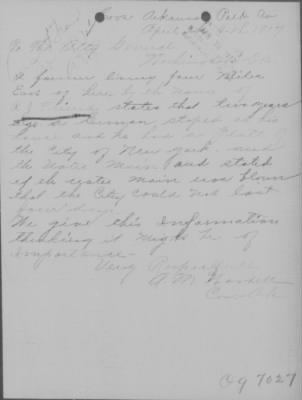 Arkansas
April 1917
To The Atty General
Washington D.C.
A farmer living four Miles
East of here by the name of
states that two years
ago a German stoped at his
and he had a Plat of
the City of New York and
the Water Main and stated
if the water main was blown
that the City could not last
four days
We give this Information
thinking it Might be of
Importance -
Very Respectfully
A. M.
Ark
Og 7027